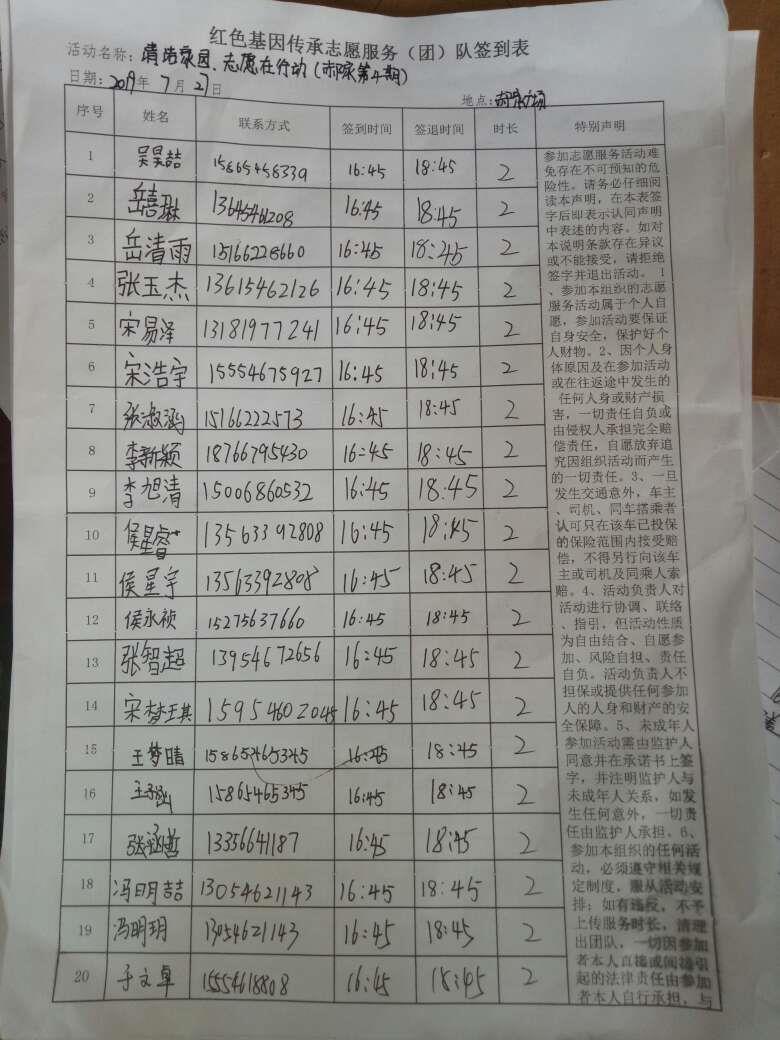 红色基因传承志愿服务（团）队签到表
活动名称：清洁家园、志愿在行动（郝家第4期）
日期：2019年7月27日
地点：广场
序号 姓名 联系方式 签到时间 签退时间 时长 特别声明
1 吴昊喆 15865458339 16:45 18:45 2
2 岳喜琳 13645461208 16:45 18:45 2
3 岳清雨 15166228660 16:45 18:45 2
4 张玉杰 13615462126 16:45 18:45 2
5 宋易泽 13181977241 16:45 18:45 2
6 宋浩宇 15554675927 16:45 18:45 2
7 张淑涵 15166222573 16:45 18:45 2
8 李新颖 18766795430 16:45 18:45 2
9 李旭清 15006860532 16:45 18:45 2
10 侯星睿 13563392808 16:45 18:45 2
11 侯星宇 13563392808 16:45 18:45 2
12 侯永祯 15275637660 16:45 18:45 2
13 张智超 13954672656 16:45 18:45 2
14 宋梦琪 15954602045 16:45 18:45 2
15 王梦晴 15865465345 16:45 18:45 2
16 王 15865465345 16:45 18:45 2
17 张涵哲 13356641187 16:45 18:45 2
18 冯明喆 13054621143 16:45 18:45 2
19 冯明玥 13054621143 16:45 18:45 2
20 于文卓 15554618808 16:45 18:45 2
参加志愿服务活动难
免存在不可预知的危
险性。请务必仔细阅
读本声明，在本表签
字后即表示认同声明
中表述的内容。如对
本说明条款存在异议
或不能接受，请拒绝
签字并退出活动。 1
、参加本组织的志愿
服务活动属于个人自
愿，参加活动要保证
自身安全，保护好个
人财物。2、因个人身
体原因及在参加活动
或在往返途中发生的
任何人身或财产损
害，一切责任自负或
由侵权人承担完全赔
偿责任，自愿放弃追
究因组织活动而产生
的一切责任。3、一旦
发生交通意外，车主
、司机、同车搭乘者
认可只在该车已投保
的保险范围内接受赔
偿，不得另行向该车
主或司机及同乘人索
赔。4、活动负责人对
活动进行协调、联络
、指引，但活动性质
为自由结合、自愿参
加、风险自担、责任
自负。活动负责人不
担保或提供任何参加
人的人身和财产的安
全保障。5、未成年人
参加活动需由监护人
同意并在承诺书上签
字，并注明监护人与
未成年人关系，如发
生任何意外，一切责
任由监护人承担。6、
参加本组织的任何活
动，必须遵守相关规
定制度，服从活动安
排；如有违反，不予
上传服务时长，清理
出团队，一切因参加
者本人直接或间接引
起的法律责任由参加
者本人自行承担，与